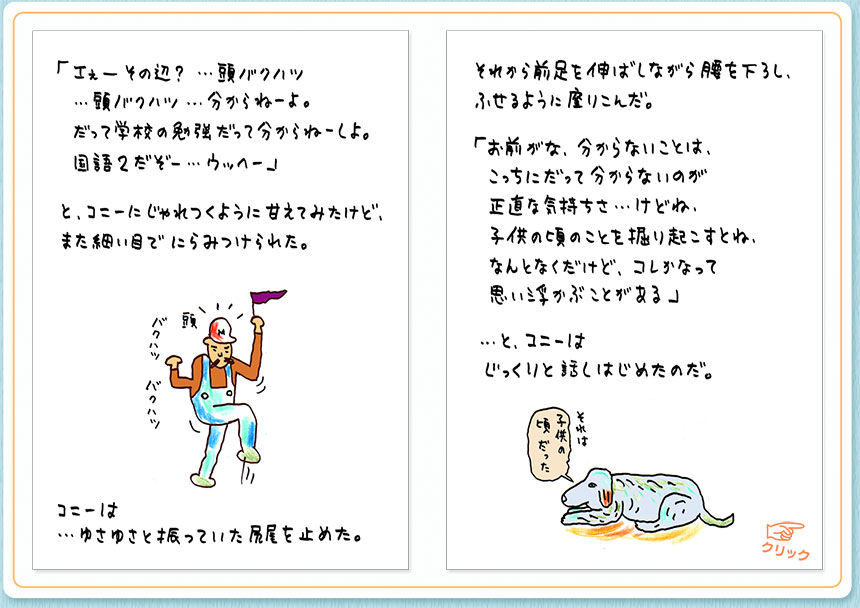 「エぇーその辺？ …頭バクハツ
…頭バクハツ …分からねーよ。
だって学校の勉強だって分からねーしよ。
国語2だぞー…ウッヘー」
と、コニーにじゃれつくように甘えてみたけど、
また細い目でにらみつけられた。
頭
バクハツ
バクハツ
M
コニーは
…ゆさゆさと振っていた尻尾を止めた。
それから前足を伸ばしながら腰を下ろし、
ふせるように座りこんだ。
「お前がな、分からないことは、
こっちにだって分からないのが
正直な気持ちさ…けどね、
子供の頃のことを掘り起こすとね、
なんとなくだけど、コレかなって
思い浮かぶことがある」
…と、コニーは
じっくりと話しはじめたのだ。
それは
子供の
頃だった
クリック